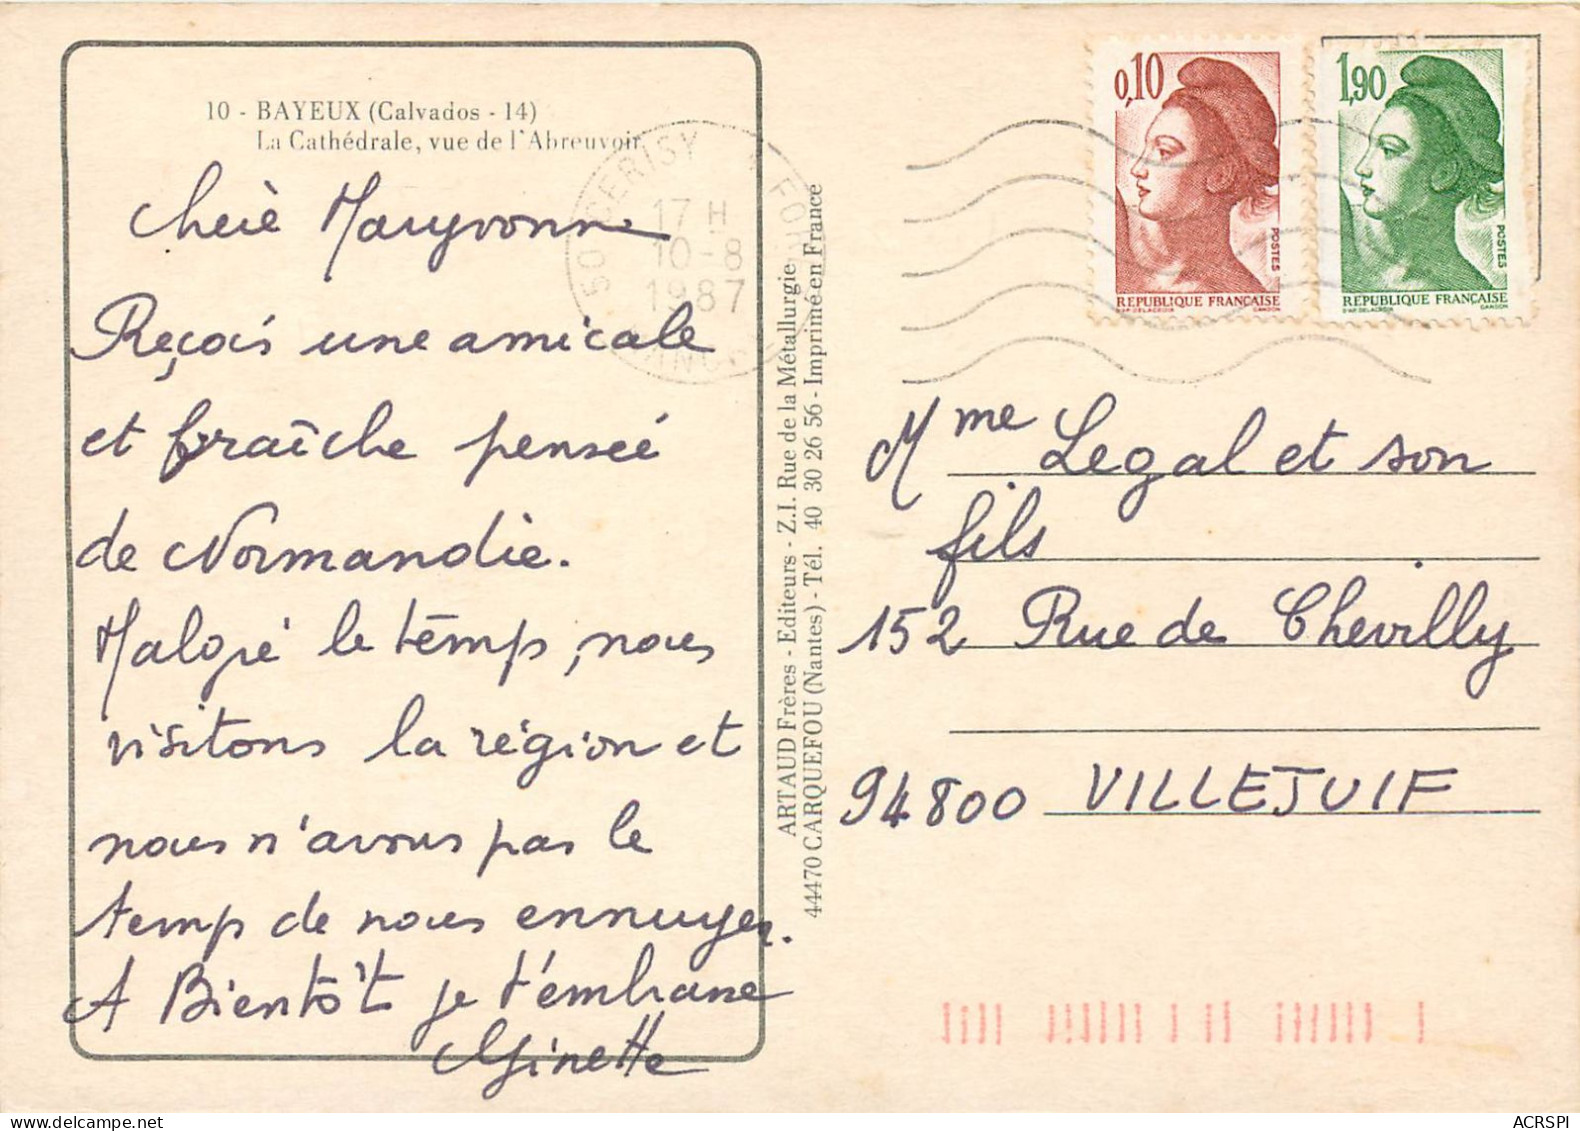 10 - BAYEUX (Calvados - 14)
La Cathédrale, vue de l'Abreuvoir
Cheiè Maryvonne
Reçois une amicale
et fraîche penseé
de Normandie.
Malgré le temps, nous
visitons la région et
nous n'avons pas le
temps de nous ennuyer.
A Bientôt je t'embrasse
Ginette
50 CERISY
17 H
10-8
1987
ARTAUD Frères - Editeurs - Z.I. Rue de la Métallurgie
44470 CARQUEFOU (Nantes) - Tél. 40 30 26 56 - Imprimé en France
0,10
POSTES
REPUBLIQUE FRANÇAISE
D'AP. DELACROIX GANDON
1,90
POSTES
REPUBLIQUE FRANÇAISE
D'AP. DELACROIX GANDON
Mme Legal et son
fils
152 Rue de Chevilly
94800 VILLEJUIF
ACRSPI